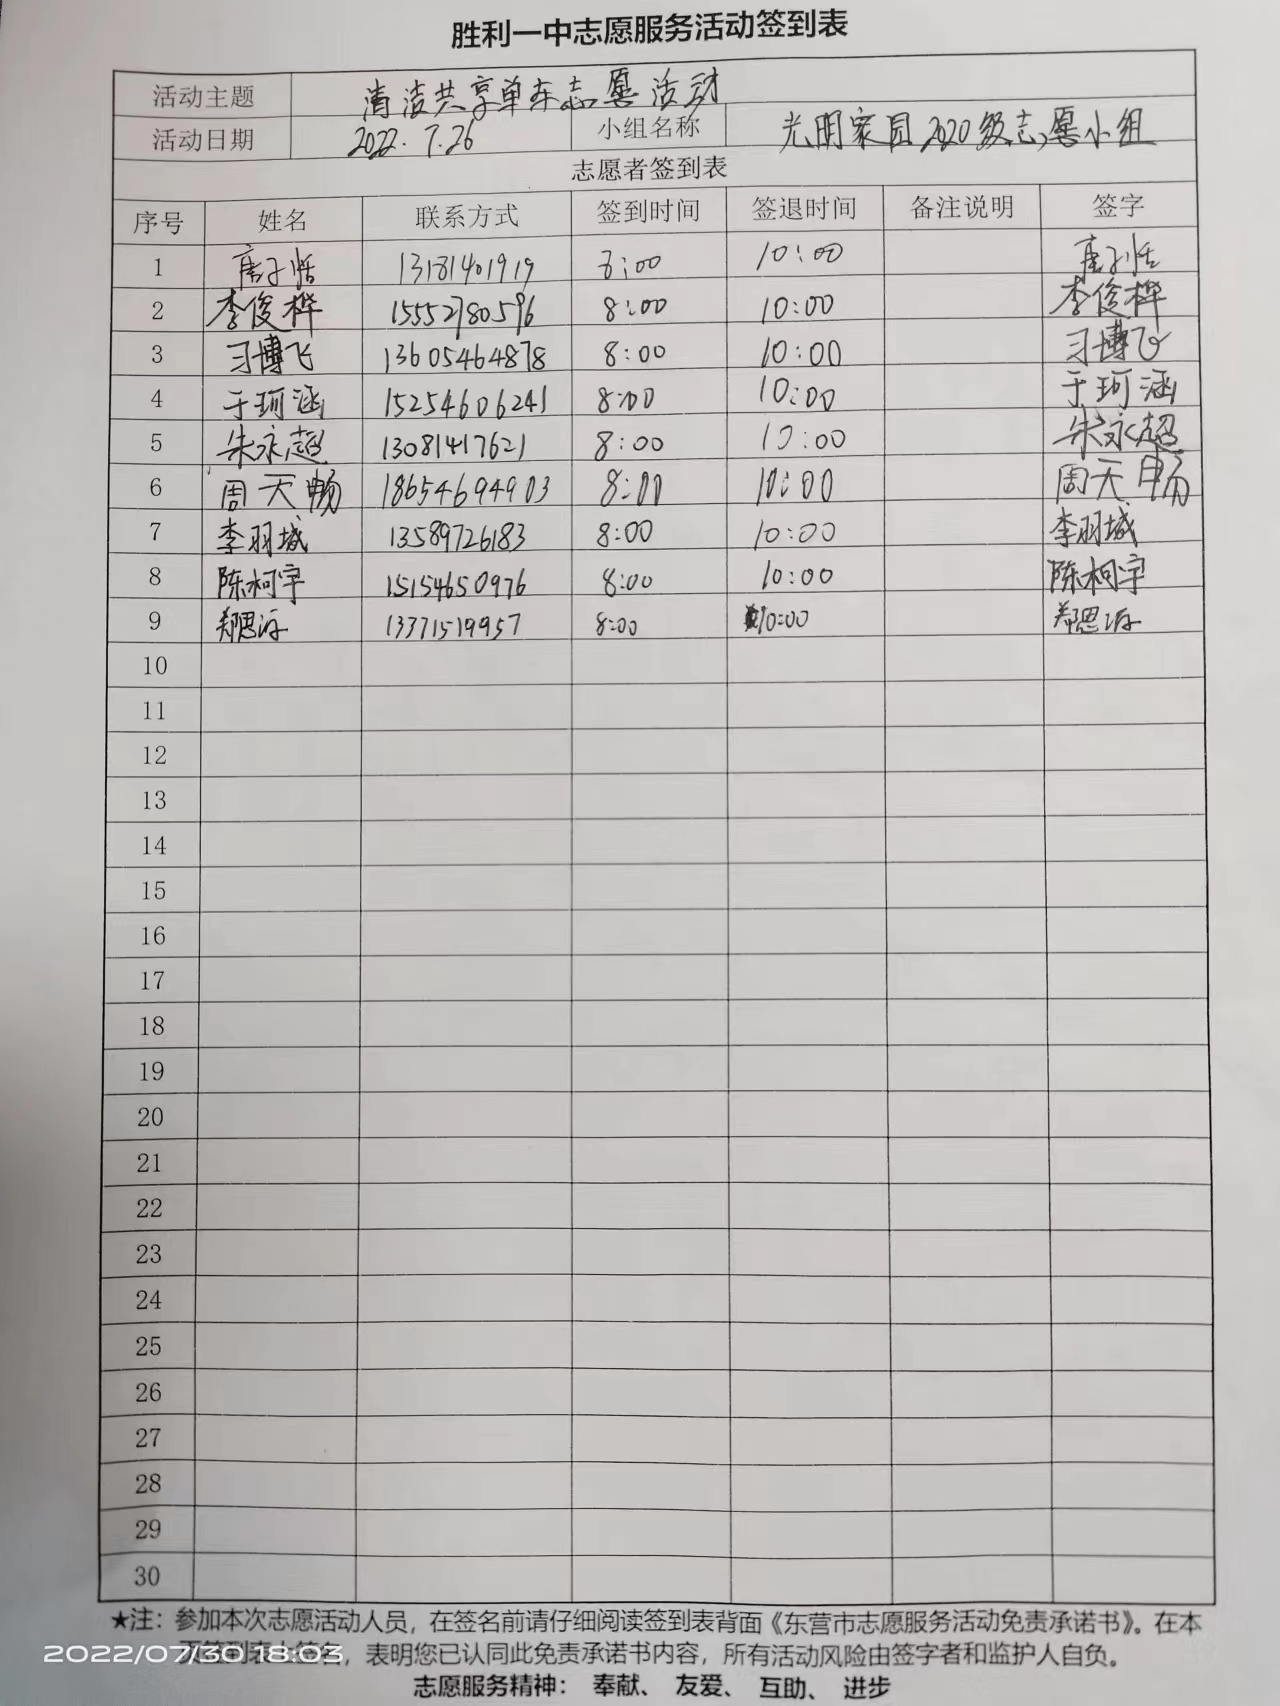 胜利一中志愿服务活动签到表
活动主题 清洁共享单车志愿活动
活动日期 2022.7.26 小组名称 光明家园2020级志愿小组
志愿者签到表
序号 姓名 联系方式 签到时间 签退时间 备注说明 签字
1 13181401919 8:00 10:00
2 李俊桦 15552780596 8:00 10:00 李俊桦
3 习博飞 13605464878 8:00 10:00 习博飞
4 于珂涵 15254606241 8:00 10:00 于珂涵
5 朱永超 13081417621 8:00 10:00 朱永超
6 周天畅 18654694903 8:00 10:00 周天畅
7 李羽城 13589726183 8:00 10:00 李羽城
8 陈柯宇 15154650976 8:00 10:00 陈柯宇
9 13371519957 8:00 10:00
10
11
12
13
14
15
16
17
18
19
20
21
22
23
24
25
26
27
28
29
30
★注：参加本次志愿活动人员，在签名前请仔细阅读签到表背面《东营市志愿服务活动免责承诺书》。在本
页签到表上签名，表明您已认同此免责承诺书内容，所有活动风险由签字者和监护人自负。
2022/07/30 18:03
志愿服务精神： 奉献、 友爱、 互助、 进步